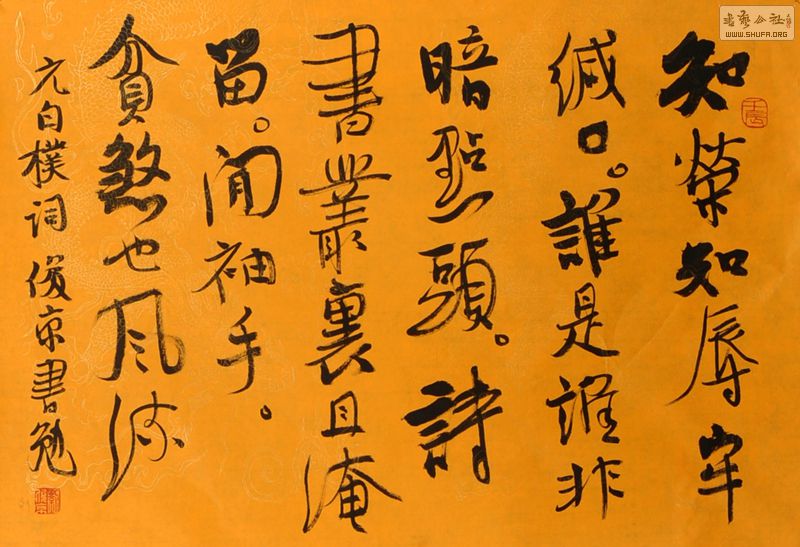 知榮知辱牢
缄口。誰是誰非
暗點頭。詩
書叢裏且淹
留。闲袖手。
貧煞也風流
元白樸词俊京書勉
書藝公社
WWW.SHUFA.ORG